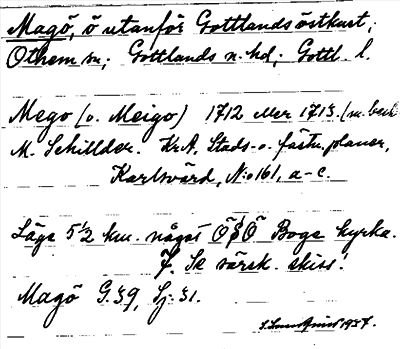 Magö, ö utanför Gottlands östkust;
Othem sn; Gottlands n. hd; Gottl. l.
Mego (o. Meigo) 1712 eller 1713. (m. beskr.
M. Schillder. Kr.A. Stads- o. fästn.planer,
Karlsvärd, N:o 161, a-c.
Läge 5½ km. något Ö Boge kyrka.
F. Se särsk. skiss!
Magö G. 39, Sj. 31.
1954.